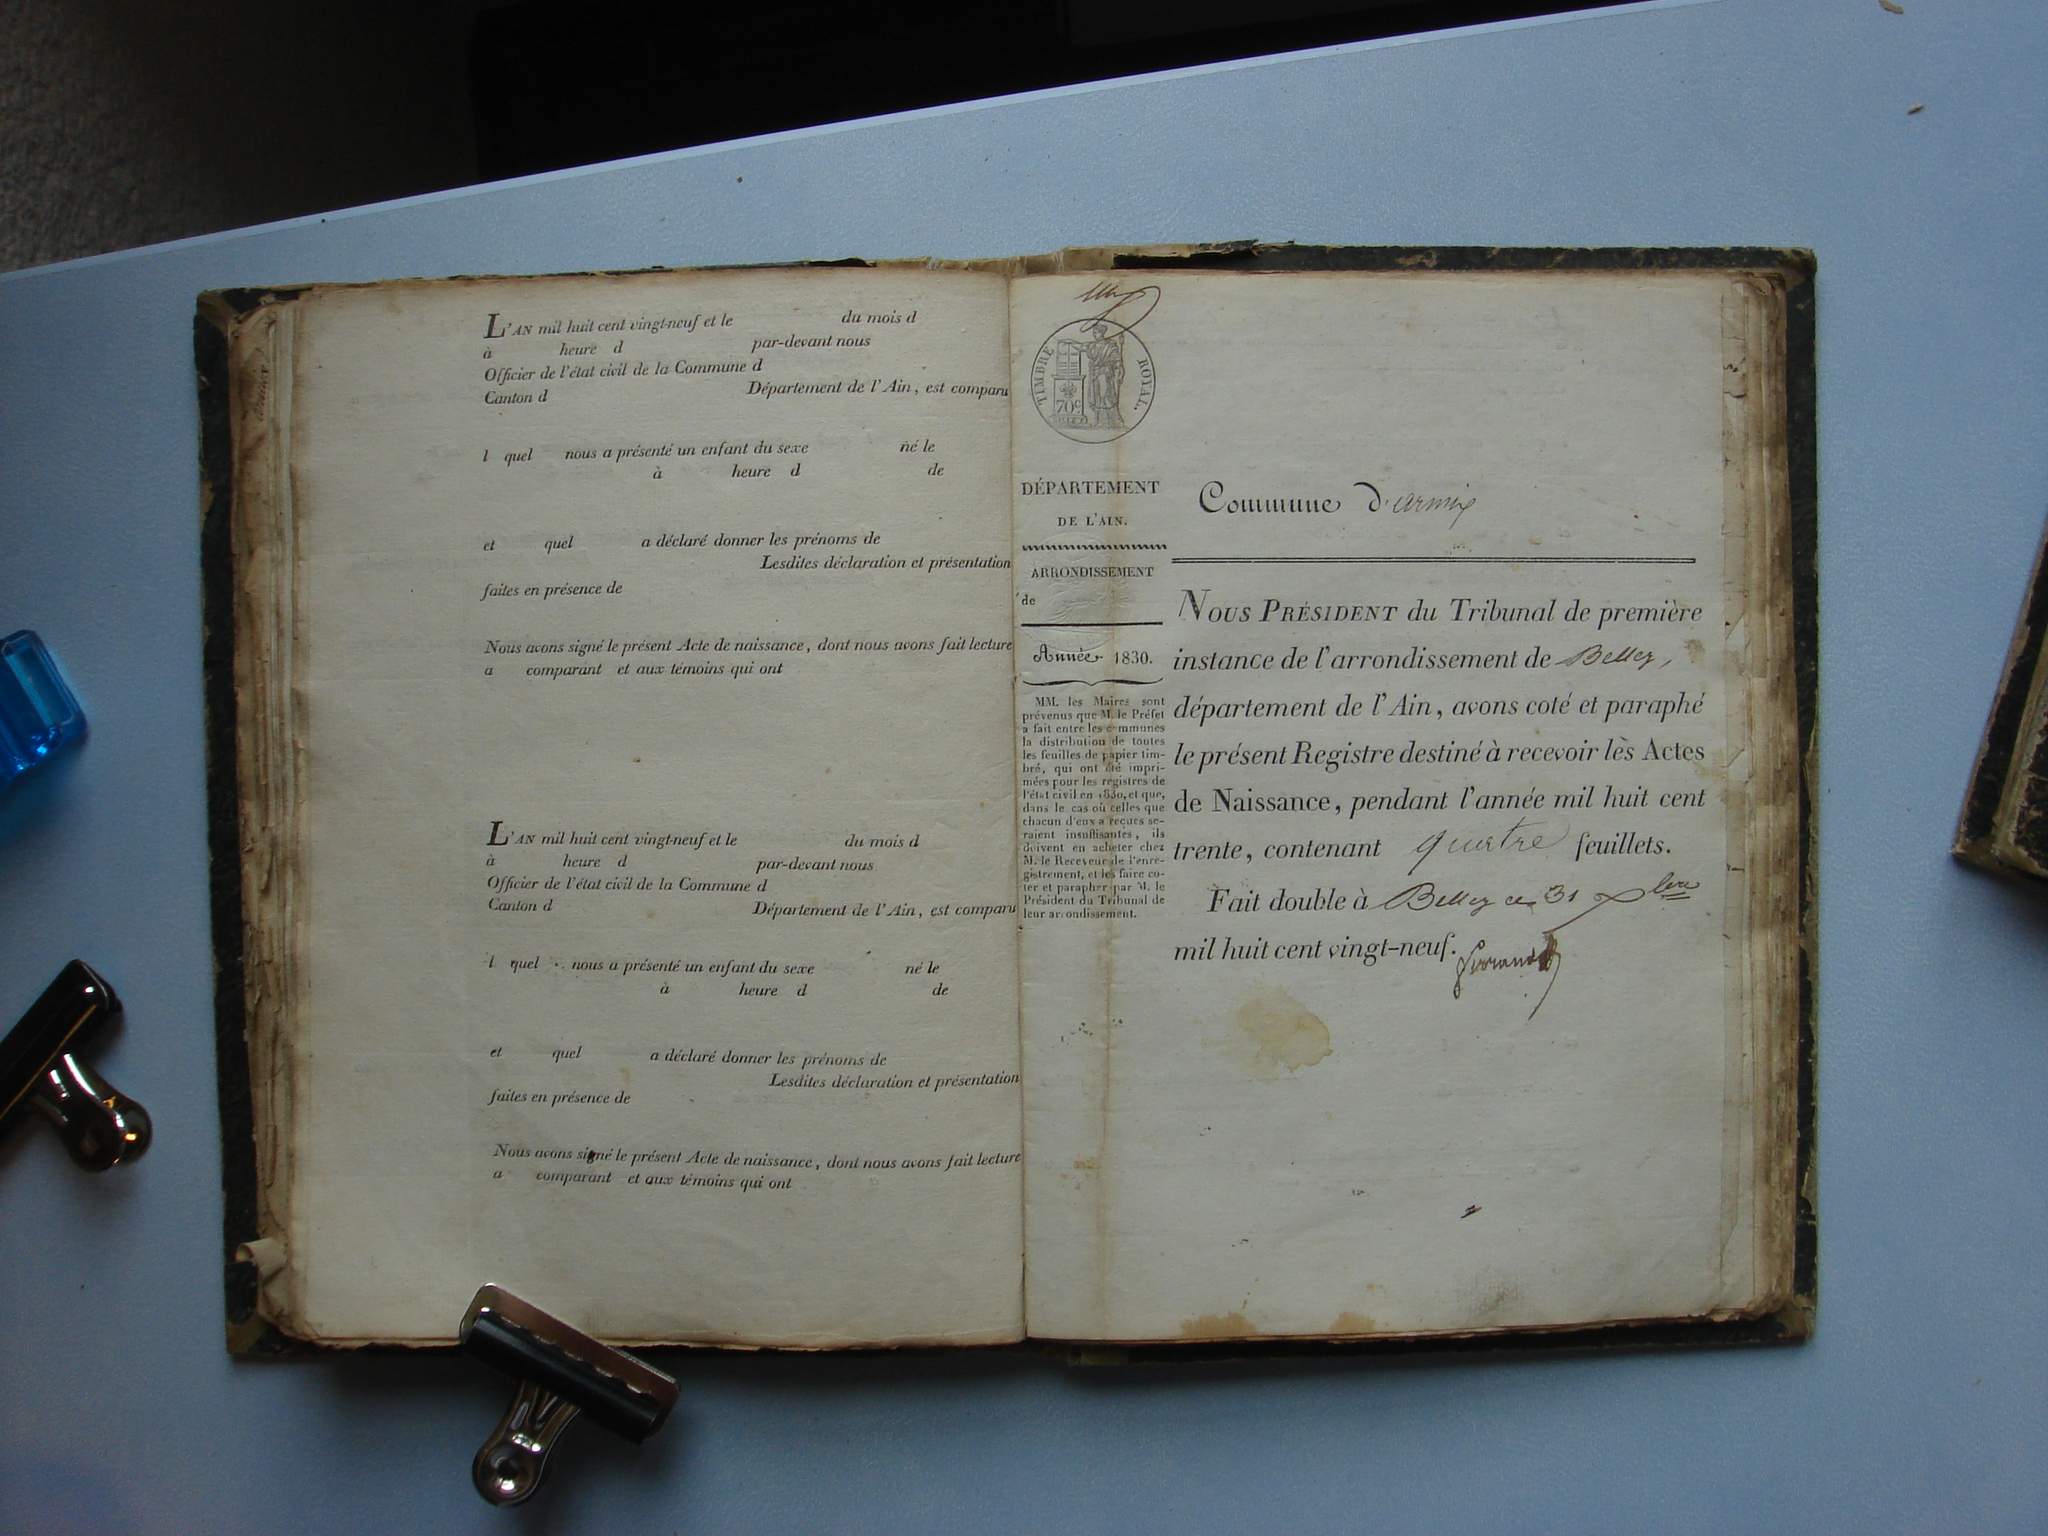 L'AN mil huit cent vingt-neuf et le du mois d
à heure d par-devant nous
Officier de l'état civil de la Commune d
Canton d Département de l'Ain, est comparu
l quel nous a présenté un enfant du sexe né le
à heure d de
et quel a déclaré donner les prénoms de
Lesdites déclaration et présentation
faites en présence de
Nous avons signé le présent Acte de naissance, dont nous avons fait lecture
a comparant et aux témoins qui ont
L'AN mil huit cent vingt-neuf et le du mois d
à heure d par-devant nous
Officier de l'état civil de la Commune d
Canton d Département de l'Ain, est comparu
l quel nous a présenté un enfant du sexe né le
à heure d de
et quel a déclaré donner les prénoms de
Lesdites déclaration et présentation
faites en présence de
Nous avons signé le présent Acte de naissance, dont nous avons fait lecture
a comparant et aux témoins qui ont
TIMBRE ROYAL.
70c
DÉPARTEMENT
DE L'AIN.
ARRONDISSEMENT
de
Année 1830.
MM. les Maires sont
prévenus que M. le Préfet
a fait entre les communes
la distribution de toutes
les feuilles de papier tim-
bré, qui ont été impri-
mées pour les registres de
l'état civil en 1830, et que,
dans le cas où celles que
chacun d'eux a reçues se-
raient insuffisantes, ils
doivent en acheter chez
M. le Receveur de l'enre-
gistrement, et les faire co-
ter et parapher par M. le
Président du Tribunal de
leur arrondissement.
Commune d'armix
NOUS PRÉSIDENT du Tribunal de première
instance de l'arrondissement de Belley,
département de l'Ain, avons coté et paraphé
le présent Registre destiné à recevoir les Actes
de Naissance, pendant l'année mil huit cent
trente, contenant quatre feuillets.
Fait double à Belley ce 31 Xbre
mil huit cent vingt-neuf.